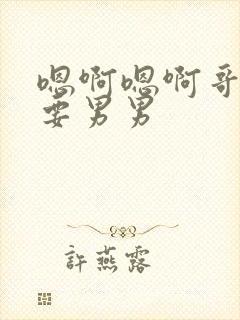 嗯啊嗯啊哥
要男男
許燕露